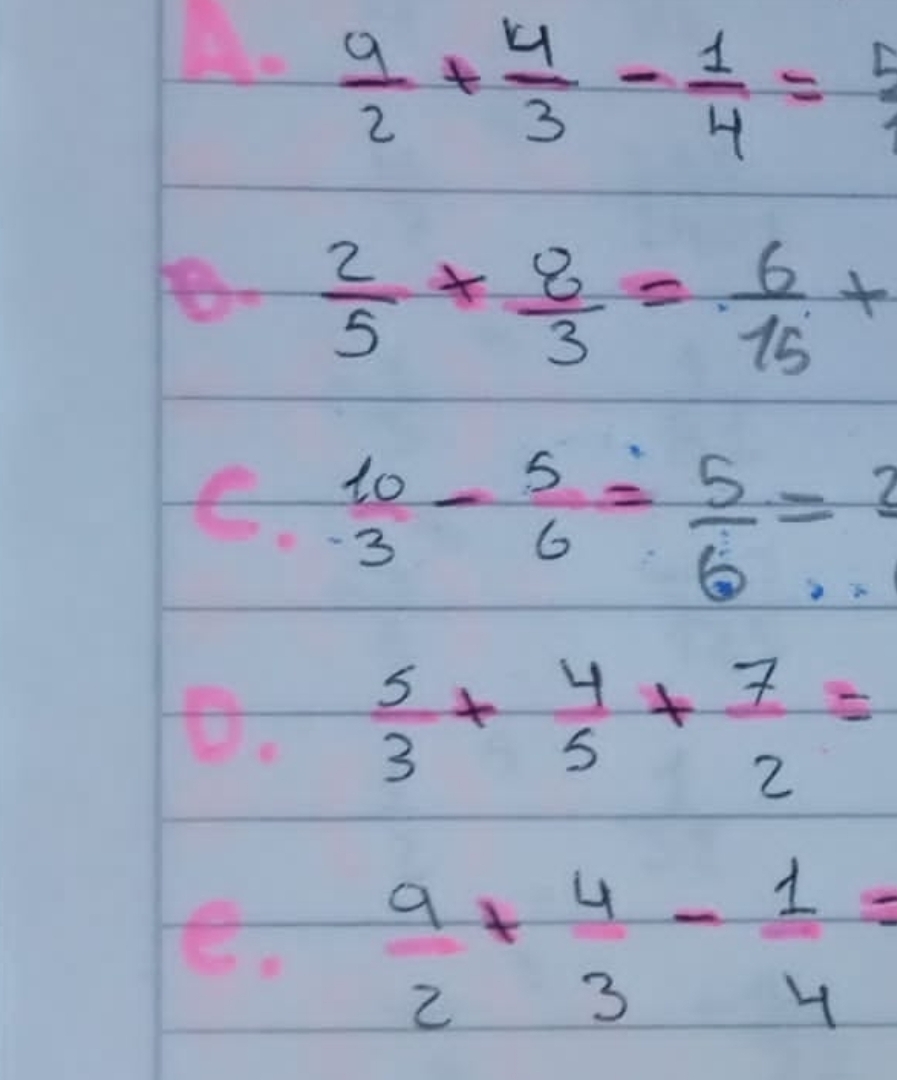 A. 9/2 + 4/3 - 1/4 =
B. 2/5 + 8/3 = 6/15 +
C. 10/3 - 5/6 = 5/6 =
D. 5/3 + 4/5 + 7/2 =
e. 9/2 + 4/3 - 1/4 =